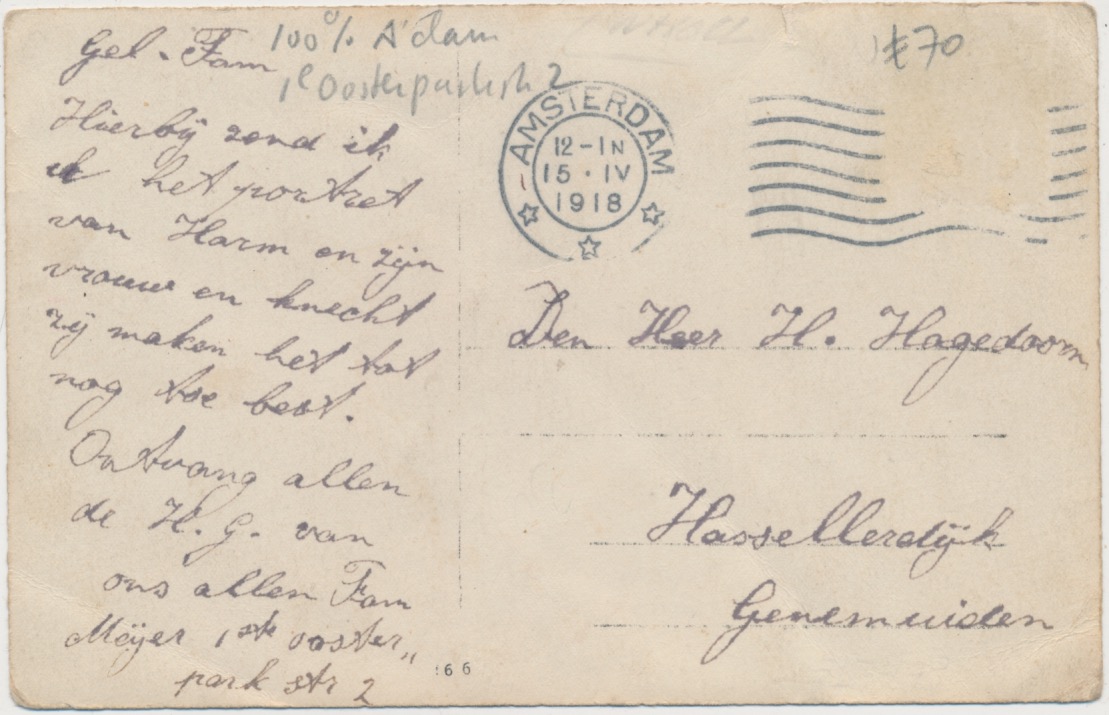 Gel. Fam
100% A'dam
1e Oosterparkstr 2
70
Hierbij zend ik
u het portret
van Harm en zijn
vrouw en knecht
zij maken het tot
nog toe best.
Ontvang allen
de H. G. van
ons allen Fam
Meijer 1ste ooster„
park str 2
AMSTERDAM
12-1N
15·IV
1918
Den Heer H. Hagedoorn
Hassellerdijk
Genemuiden
166